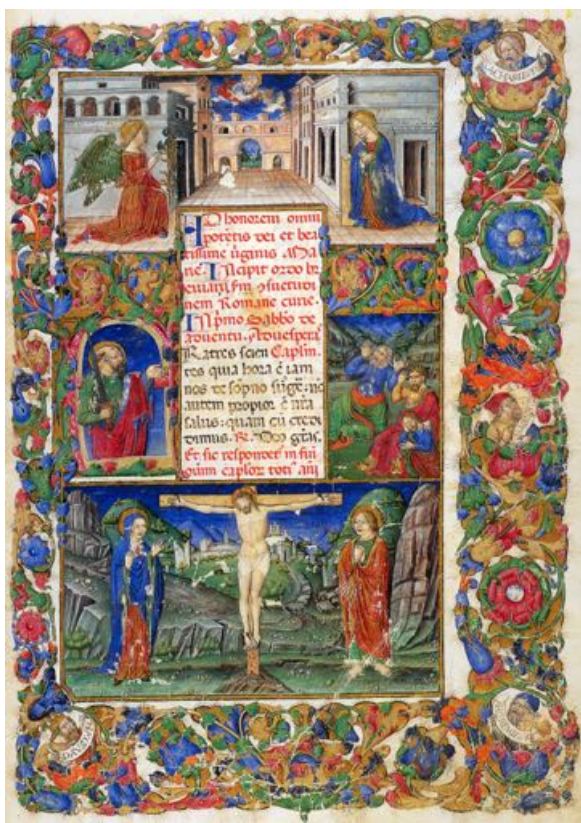 ZACHARIAS
AD honorem omni
potētis dei et bea
tissime ūginis Ma
rie. Incipit ordo br
euiarij ſm ɔsuetudi
nem Romane curie.
In pmo Sabbo de
aduentu. Ad uesperˀ
Ratres scien Caplm̄
tes quia hora ē iam
nos de sōpno surge: nc̄
autem propior ē nr̄a
salus: quam cū credi
dimus. R. Deo grās.
Et sic respondet in fin
omim caploꝝ toti ani
DAVID